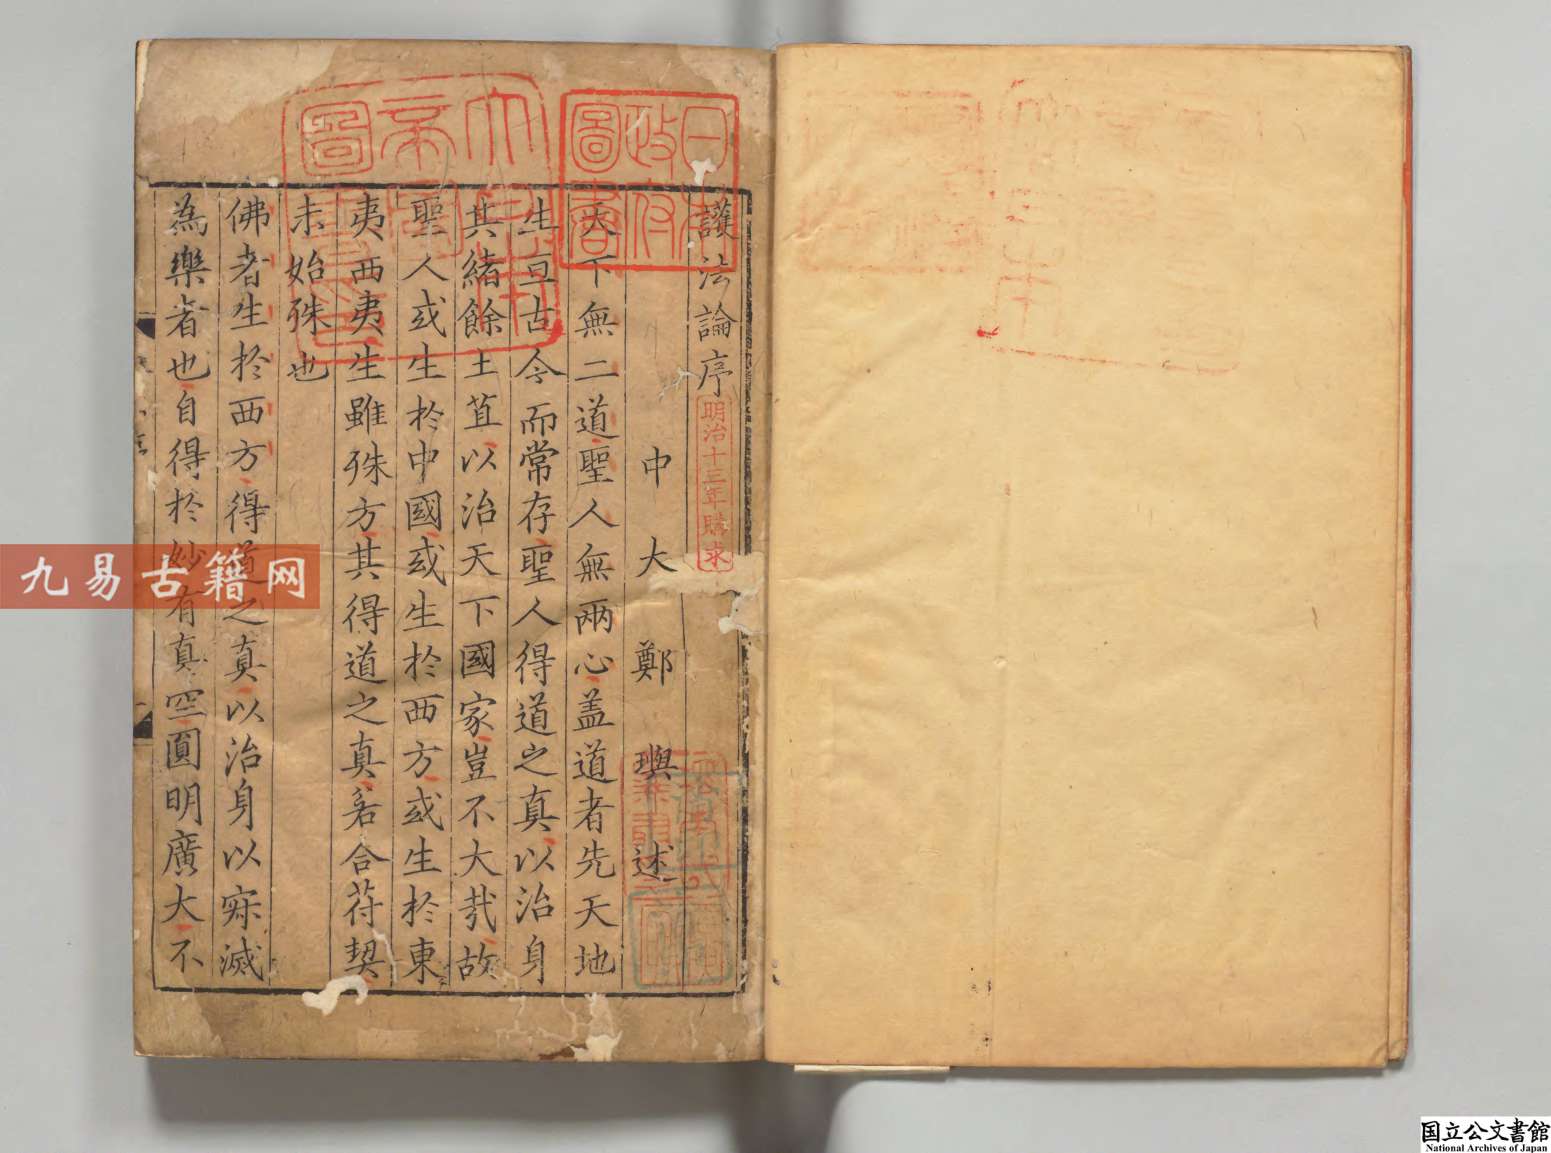 護法論序
中大鄭璵述
天下無二道聖人無兩心盖道者先天地
生亘古今而常存聖人得道之真以治身
其緒餘土苴以治天下國家豈不大㢤故
聖人或生於中國或生於西方或生於東
夷西夷生雖殊方其得道之真若合符契
未始殊也
佛者生於西方得道之真以治身以寂滅
為樂者也自得於妙有真空圓明廣大不
明治十三年購求
日本政府圖書
九易古籍网
国立公文書館
National Archives of Japan